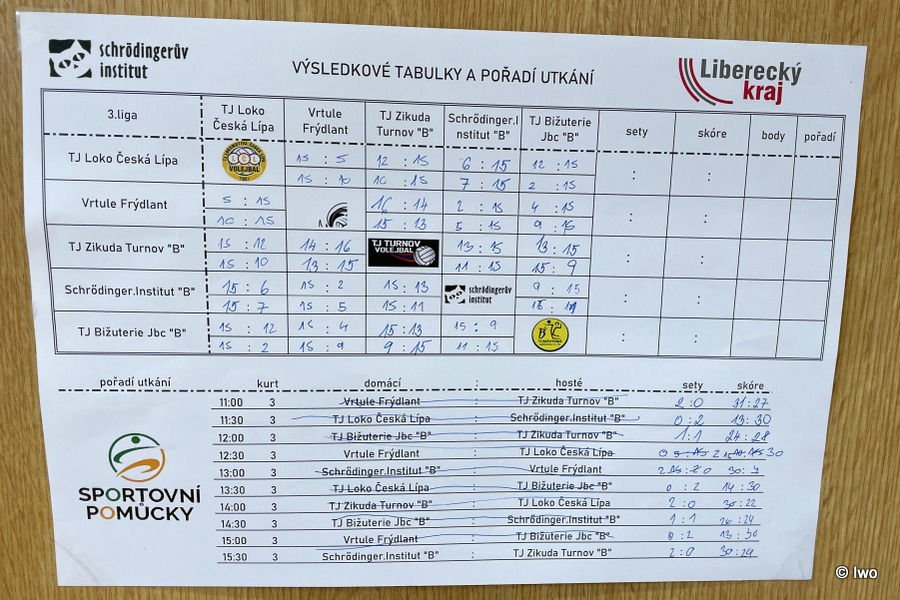 schrödingerův
institut
VÝSLEDKOVÉ TABULKY A POŘADÍ UTKÁNÍ
Liberecký
kraj
3.liga TJ Loko Česká Lípa Vrtule Frýdlant TJ Zikuda Turnov "B" Schrödinger.Institut "B" TJ Bižuterie Jbc "B" sety skóre body pořadí
TJ Loko Česká Lípa 15 : 5 12 : 15 6 : 15 12 : 15 : :
VOLEJBAL
15 : 10 10 : 15 7 : 15 2 : 15
Vrtule Frýdlant 5 : 15 16 : 14 2 : 15 4 : 15 : :
10 : 15 15 : 13 5 : 15 9 : 15
TJ Zikuda Turnov "B" 15 : 12 14 : 16 TJ TURNOV VOLEJBAL 13 : 15 13 : 15 : :
15 : 10 13 : 15 11 : 15 15 : 9
Schrödinger.Institut "B" 15 : 6 15 : 2 15 : 13 schrödingerův institut 9 : 15 : :
15 : 7 15 : 5 15 : 11 15 : 11
TJ Bižuterie Jbc "B" 15 : 12 15 : 4 15 : 13 15 : 9 : :
15 : 2 15 : 9 9 : 15 11 : 15
pořadí utkání kurt domácí : hosté sety skóre
11:00 3 Vrtule Frýdlant : TJ Zikuda Turnov "B" 2 : 0 31 : 27
11:30 3 TJ Loko Česká Lípa : Schrödinger.Institut "B" 0 : 2 13 : 30
12:00 3 TJ Bižuterie Jbc "B" : TJ Zikuda Turnov "B" 1 : 1 24 : 28
12:30 3 Vrtule Frýdlant : TJ Loko Česká Lípa 0 : 2 30
13:00 3 Schrödinger.Institut "B" : Vrtule Frýdlant 2 : 0 30 : 7
13:30 3 TJ Loko Česká Lípa : TJ Bižuterie Jbc "B" 0 : 2 14 : 30
14:00 3 TJ Zikuda Turnov "B" : TJ Loko Česká Lípa 2 : 0 30 : 22
14:30 3 TJ Bižuterie Jbc "B" : Schrödinger.Institut "B" 1 : 1 26 : 24
15:00 3 Vrtule Frýdlant : TJ Bižuterie Jbc "B" 0 : 2 13 : 30
15:30 3 Schrödinger.Institut "B" : TJ Zikuda Turnov "B" 2 : 0 30 : 24
SPORTOVNÍ
POMŮCKY
© Iwo